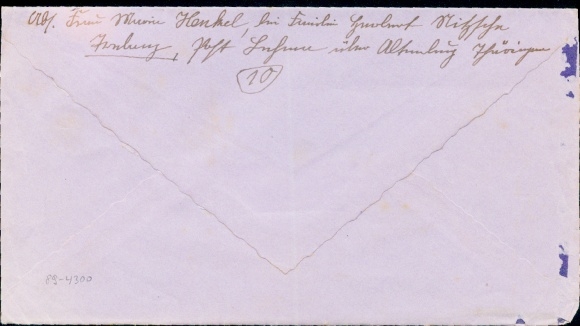 Abs. Frau Marie Henkel, bei Familie Herbert Nitzsche
Post Lehma über Altenburg Thüringen
10
89-4300